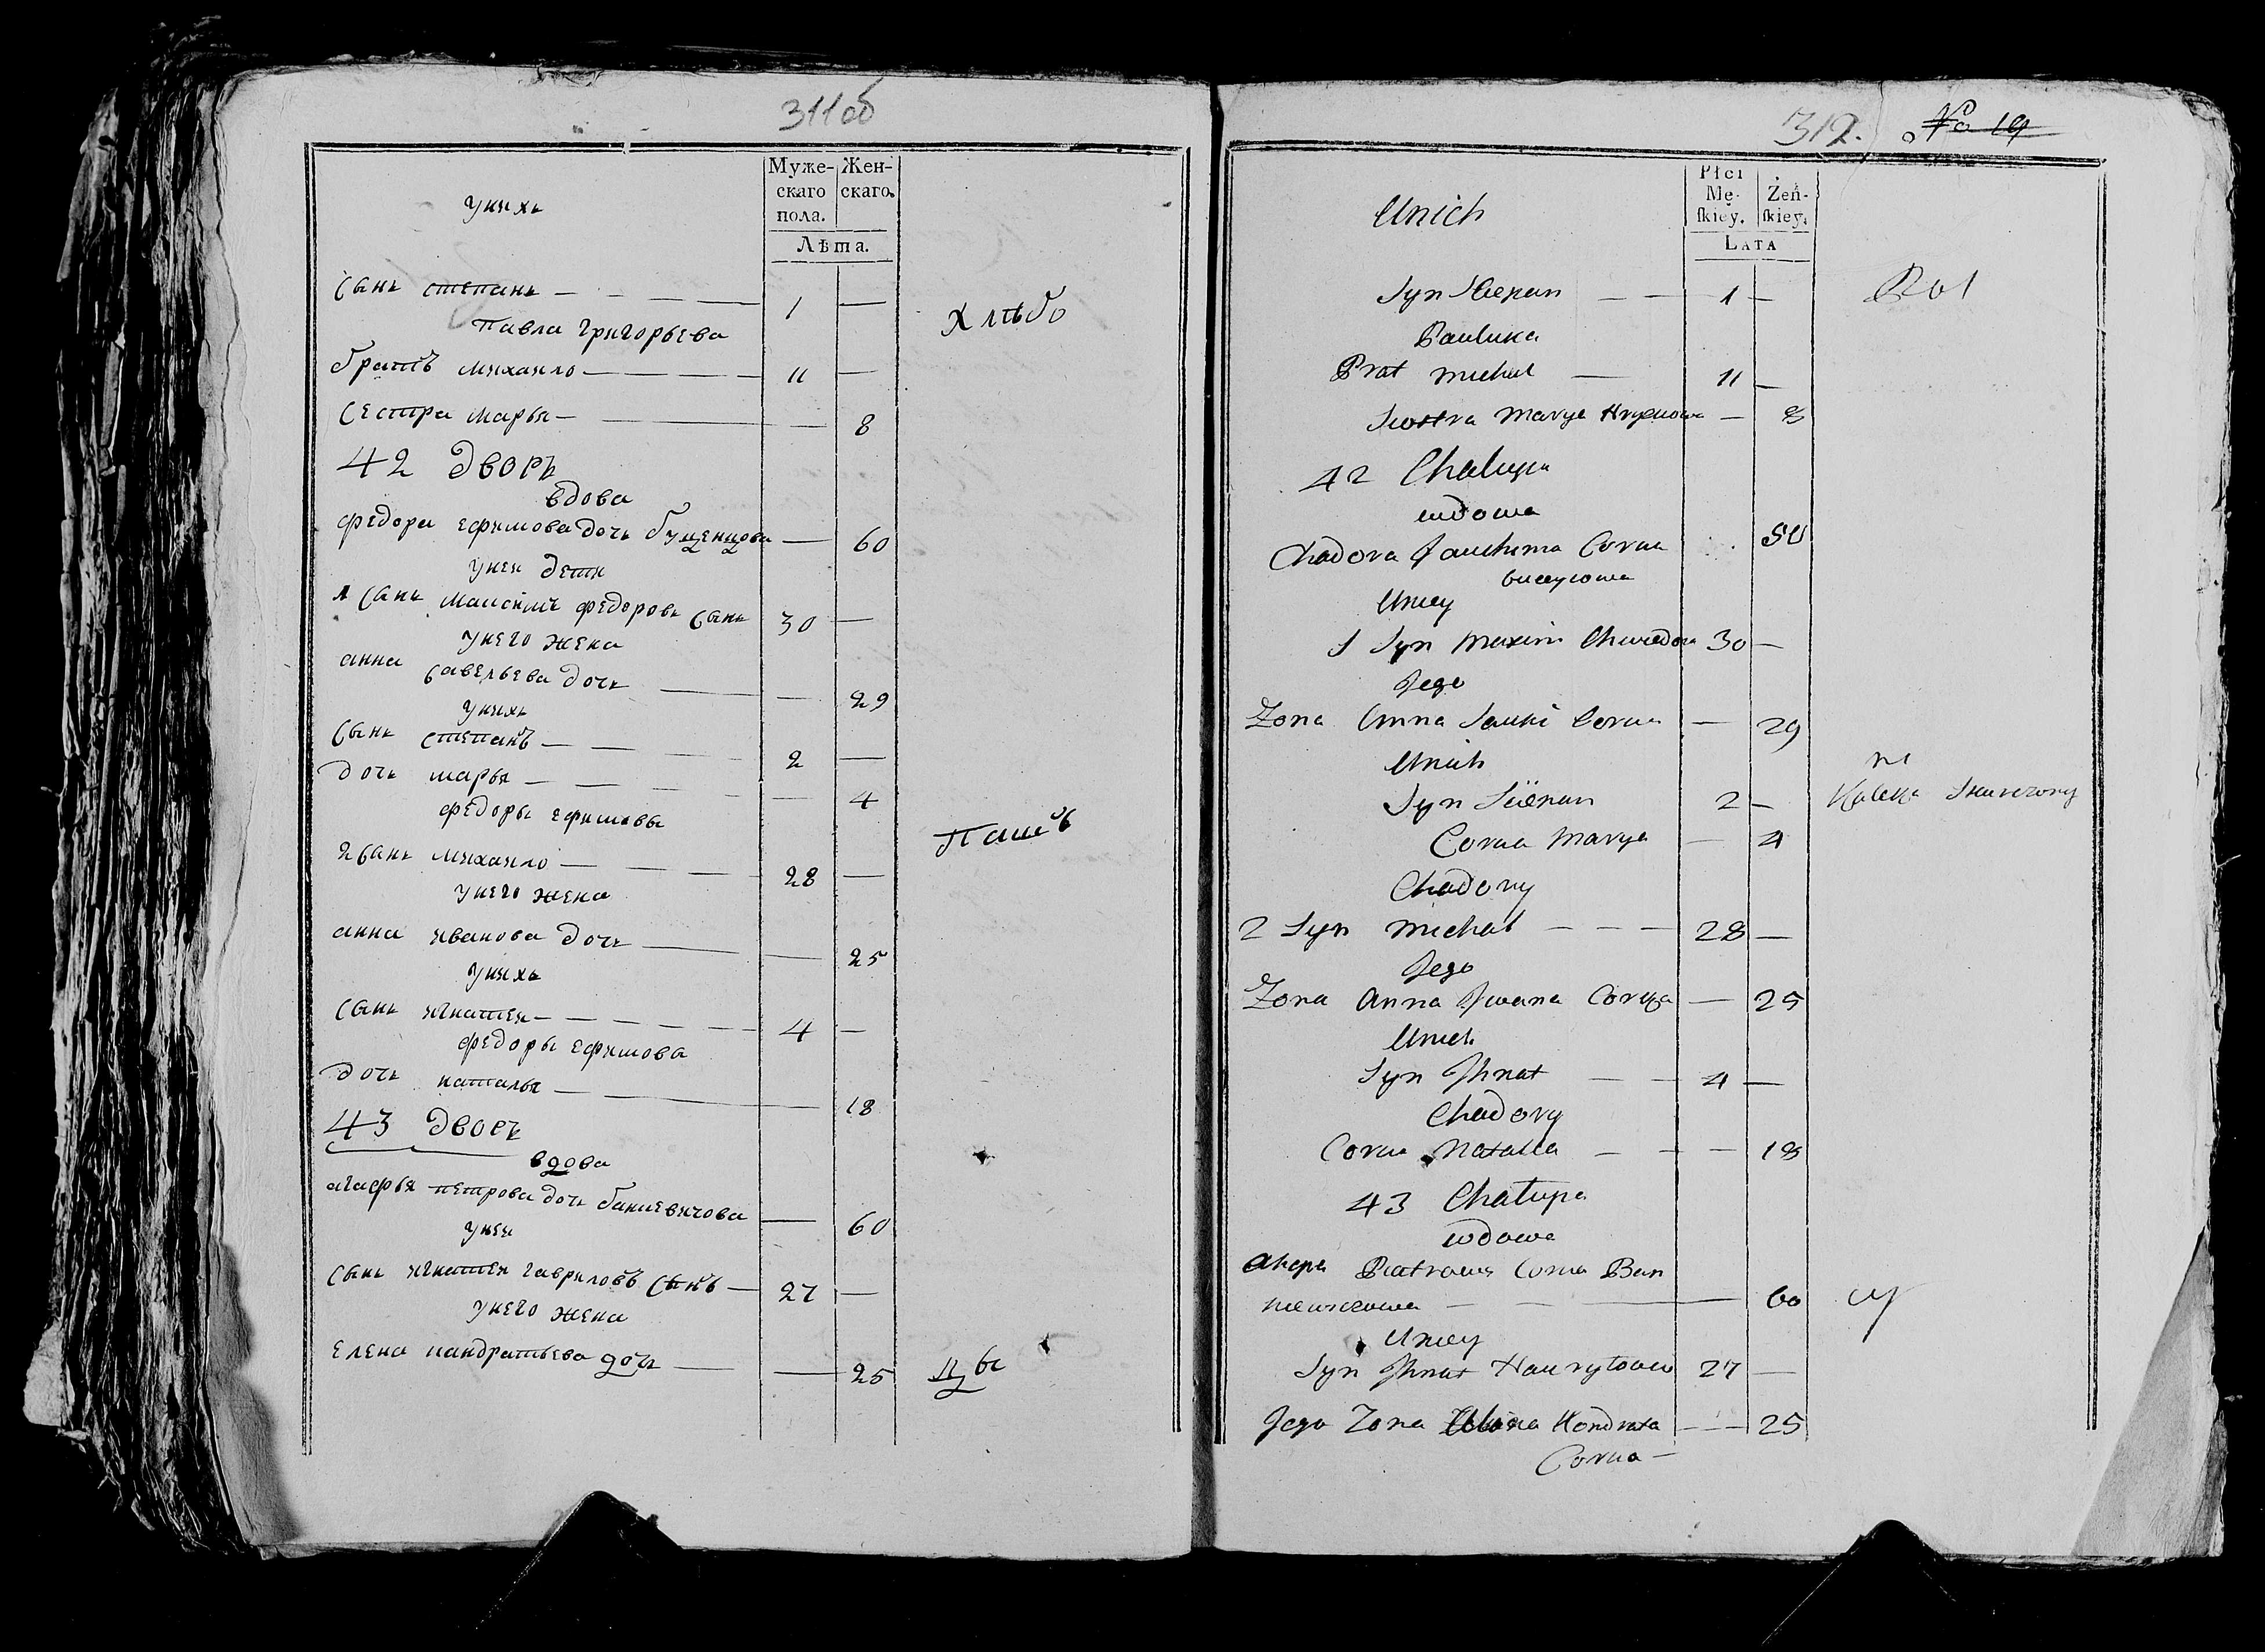 311об
Муже- Жен-
скаго скаго.
пола.
Лѣта.
унихъ
сынъ степанъ — 1 —
Павла григорьева
Хлѣбо
братъ михаило — 11 —
сестра марья — — 8
42 дворъ
вдова
федора ефимова дочь буценцова — 60
унеи дети
1 сынъ максимъ федоровъ сынъ 30 —
унего жена
анна савельева дочь — — 29
унихъ
сынъ степанъ — 2 —
дочь марья — — 4
федоры ефимовы
пашъ
2 сынъ михаило — 28 —
унего жена
анна иванова дочь — — 25
унихъ
сынъ игнатеи — 4 —
федоры ефимова
дочь наталья — — 18
43 дворъ
вдова
агафья петрова дочь баниевичова — 60
унеи
сынъ игнатеи гавриловъ сынъ — 27 —
унего жена
елена кандратьева дочь — — 25 цы
312. No 19
Płci
Mę- Żeń-
ſkiey. ſkiey.
LATA
Unich
Syn Stepan — 1 —
Pauluka
Brat Michał — 11 —
Siostra Marya — 8
42 Chałupa
wdowa
Chadora Jauchima Corka 50
Uniey
1 Syn Maxim Chwiedora 30 —
Jego
Zona Anna Sauki Corka — 29
Unich
ni
Syn Sciepan 2 — Kaleka
Corka Marya — 4
Chadory
2 Syn Michał — 28 —
Jego
Zona Anna Jwana Corka — 25
Unich
Syn Jhnat — 4 —
Chadory
Corka Natalla — — 18
43 Chałupa
wdowa
Ahapa Piatrowa Corka Ban
niewiczowa — — 60 cy
Uniey
Syn Jhnat Hauryłowy 27 —
Jego Zona Alena Kondrata — 25
Corka —